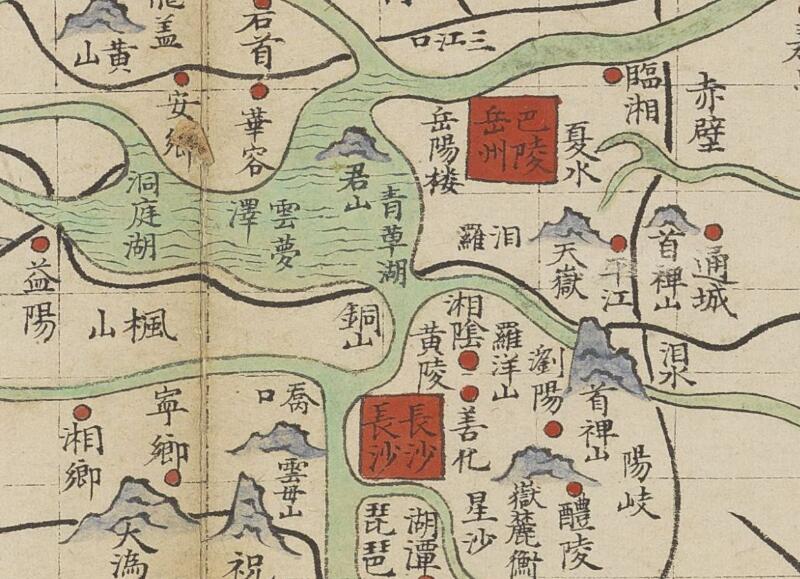 黃山
石首
三江口
安鄉
華容
臨湘
赤壁
岳陽楼
巴陵
岳州
夏水
君山
洞庭湖
雲夢
澤
青草湖
汨羅
天嶽
平江
首禆山
通城
益陽
楓山
銅山
湘陰
黃陵
羅洋山
瀏陽
首禆山
汨水
喬口
寧鄉
湘鄉
長沙
長沙
善化
雲母山
陽岐
大溈
祝
琵琶
湖潭
星沙
嶽麓衡
醴陵